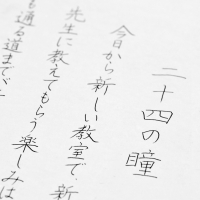 二十四の瞳
今日から新しい教室で、新
先生に教えてもらう楽しみは
も通る道までが